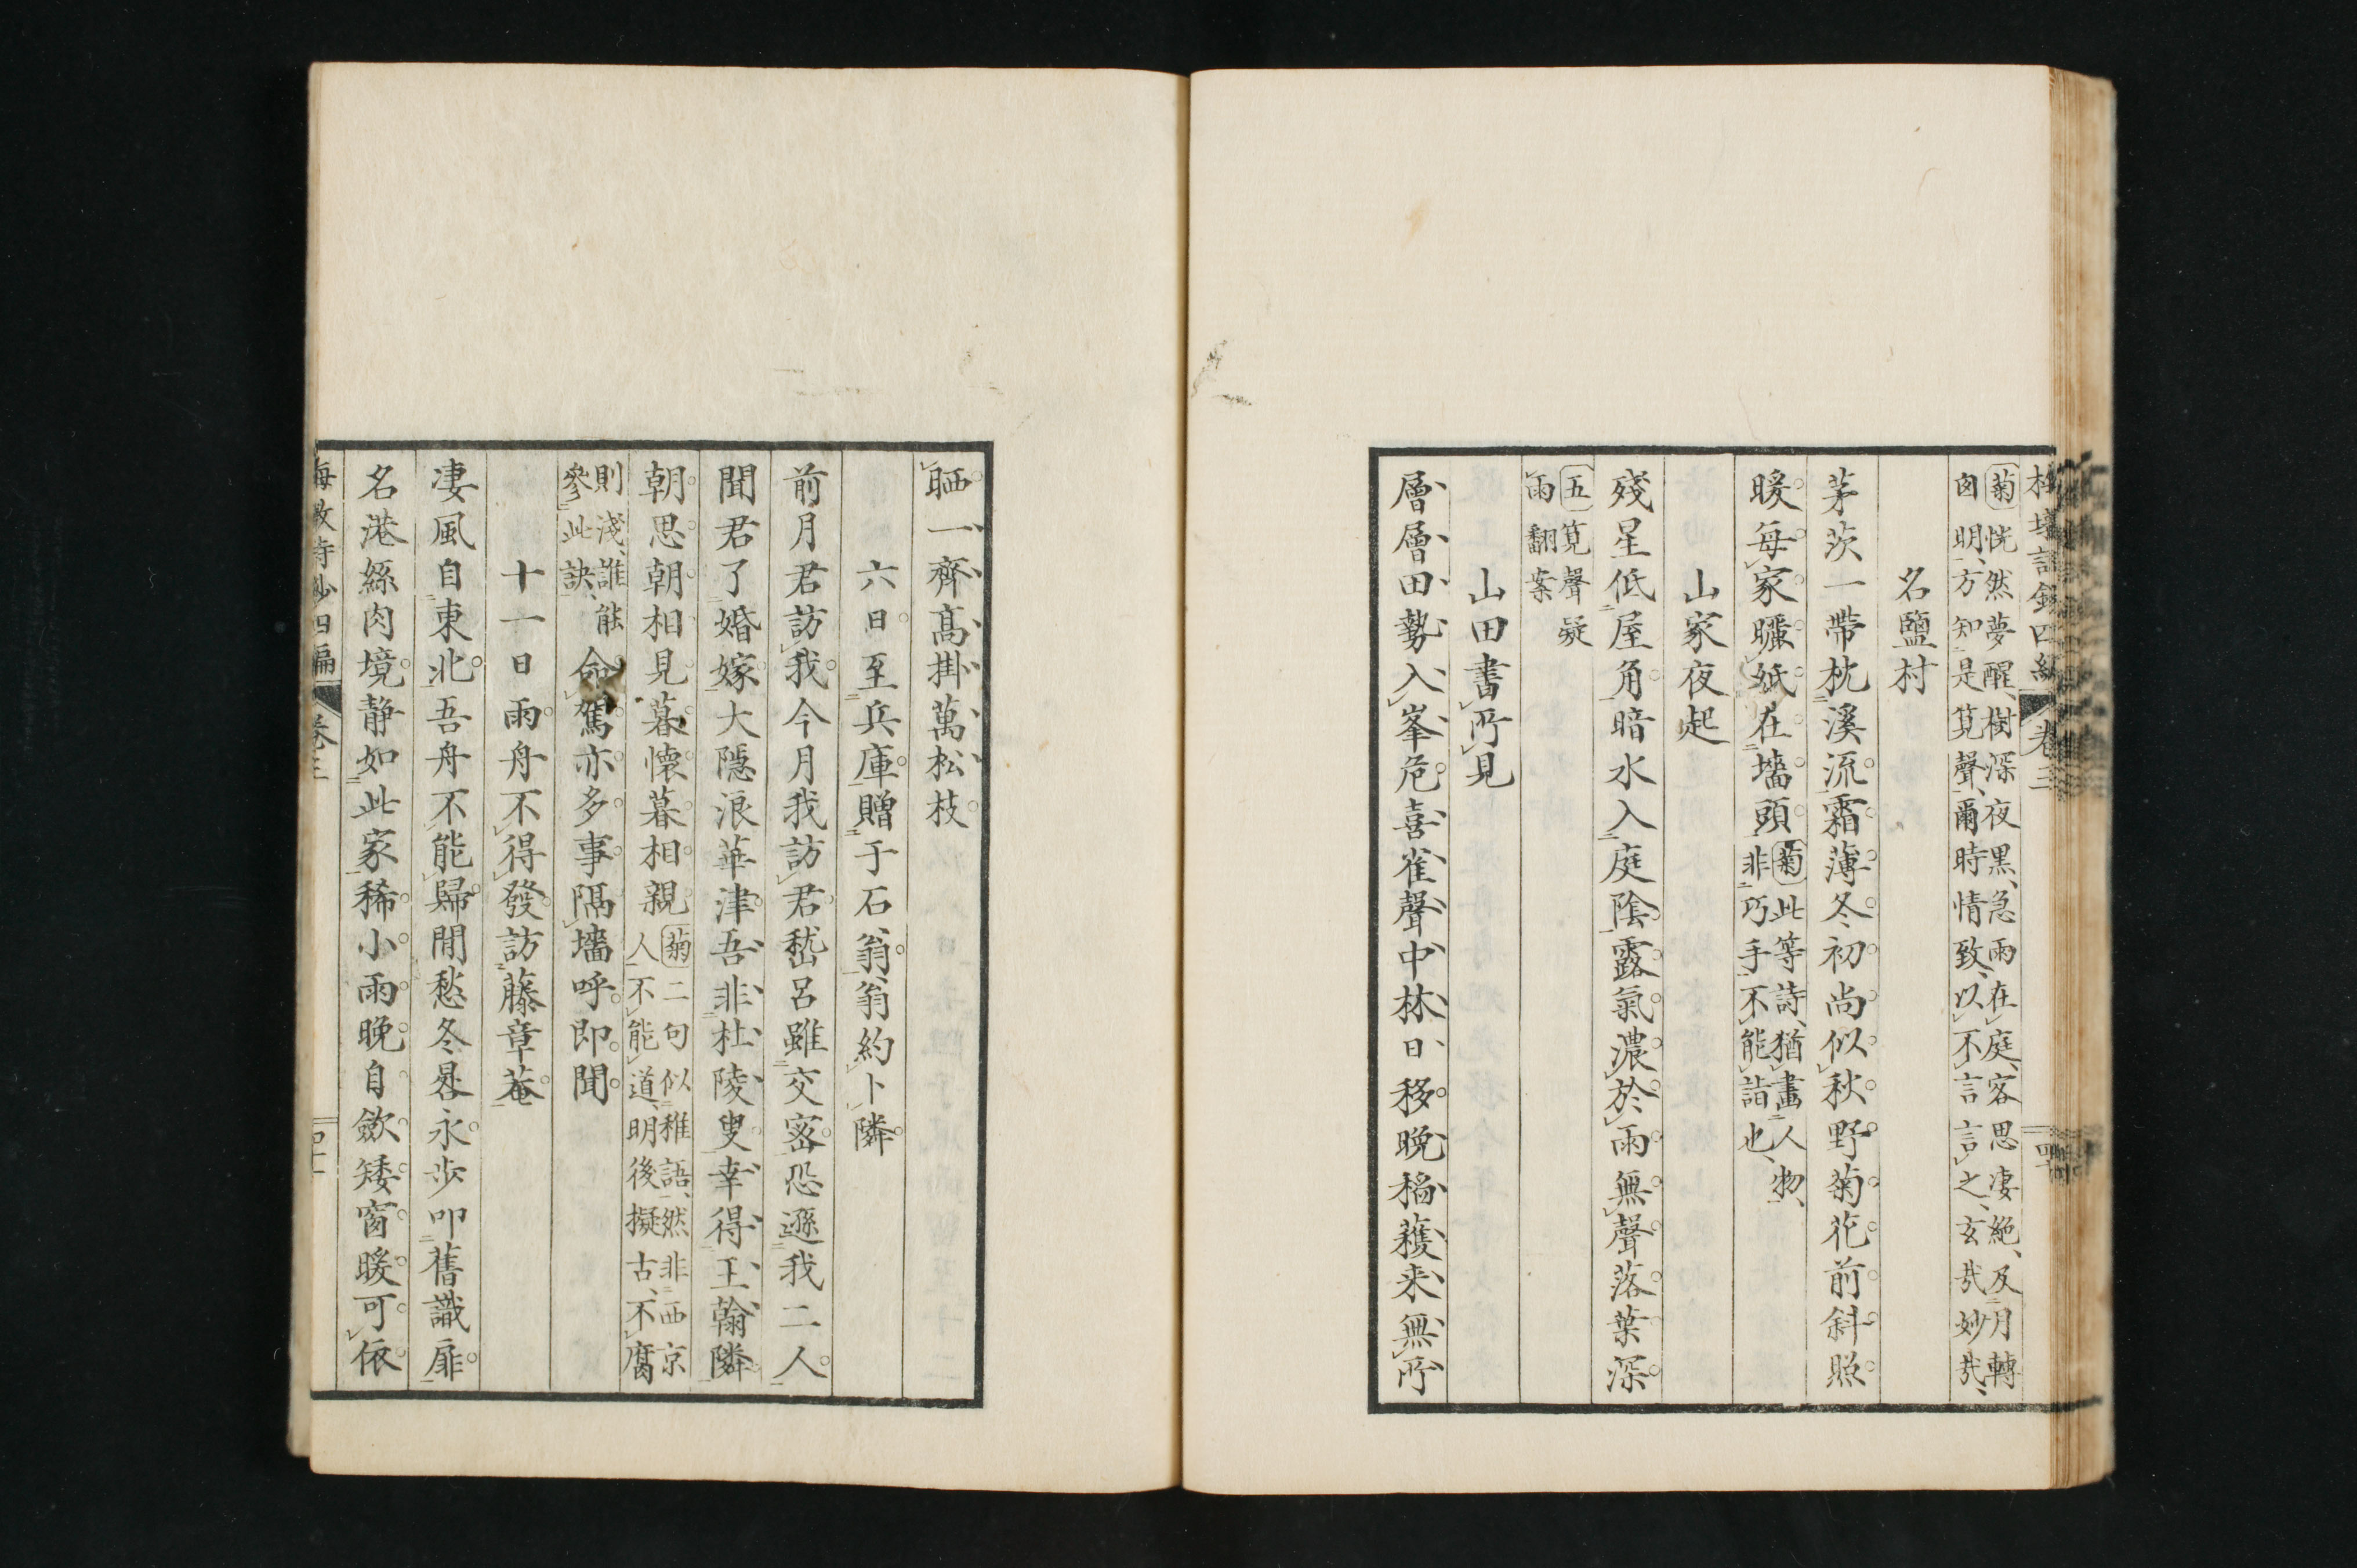 菊恍然夢醒、樹深夜黒、急雨在庭、客思凄絶、及月轉
囱明、方知是筧聲、爾時情致、以不言言之、玄哉妙哉、
名鹽村
茅茨一帶枕溪流霜薄冬初尚似秋野菊花前斜照
暖每家曬紙在墻頭
菊此等詩、猶畫人物、
非巧手、不能詣也、
山家夜起
殘星低屋角暗水入庭陰露氣濃於雨無聲落葉深
五筧聲疑
雨翻案
山田書所見
層層田勢入峯危喜雀聲中林日移晩稻穫来無所
晒一齊高掛萬松枝
六日至兵庫贈于石翁、翁約卜隣
前月君訪我今月我訪君嵇呂雖交密恐遜我二人
聞君了婚嫁大隱浪華津吾非杜陵叟幸得王翰隣
朝思朝相見暮懷暮相親
菊二句似稚語、然非西京
人不能道、明後擬古、不腐
則淺、誰能
參此訣、
命駕亦多事隔墻呼即聞
十一日雨舟不得發訪藤章菴
凄風自東北吾舟不能歸閒愁冬晷永步叩舊識扉
名港絲肉境靜如此家稀小雨晩自歛矮窗暖可依
四編
卷三